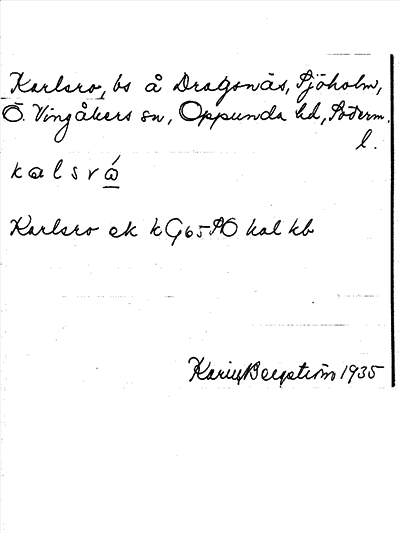 Karlsro, bs å Dragsnäs, Sjöholm,
Ö. Vingåkers sn, Oppunda hd, Söderm.
l.
kalsrǻ
Karlsro ek kG65SO kal kb
Karin Bergström 1935